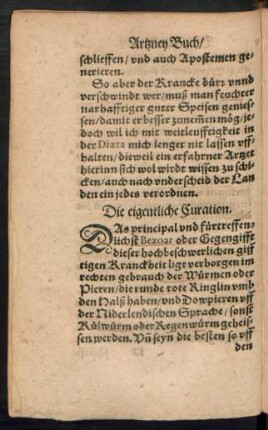 Artzney Buch/
schlieffen/ vnd auch Apostemen ge-
nerieren.
So aber der Krancke dürr vnnd
verschwindt wer/ muß man feuchter
narhafftiger guter Speisen genies-
sen/ damit er besser zunemen mög/ je-
doch wil ich mit weitleufftigkeit in
der Diæta mich lenger nit lassen vff-
halten/ dieweil ein erfahrner Artzet
hierinn sich wol wirdt wissen zu schi-
cken/ auch nach vnderscheid der Lan
den ein jedes verordnen.
Die eigentliche Curation.
DAs principal vnd fürtreffen-
lichst Bezoar oder Gegengifft
dieser hochbeschwerlichen giff
tigen Kranckheit ligt verborgen im
rechten gebrauch der Würmen oder
Pieren/ die runde rote Ringlin vmb
den Halß haben/ vnd Dowpieren vff
der Niderlendischen Sprache/ sonst
Külwürm oder Regenwürm geheis-
sen werden. Vñ seyn die besten so vff
den